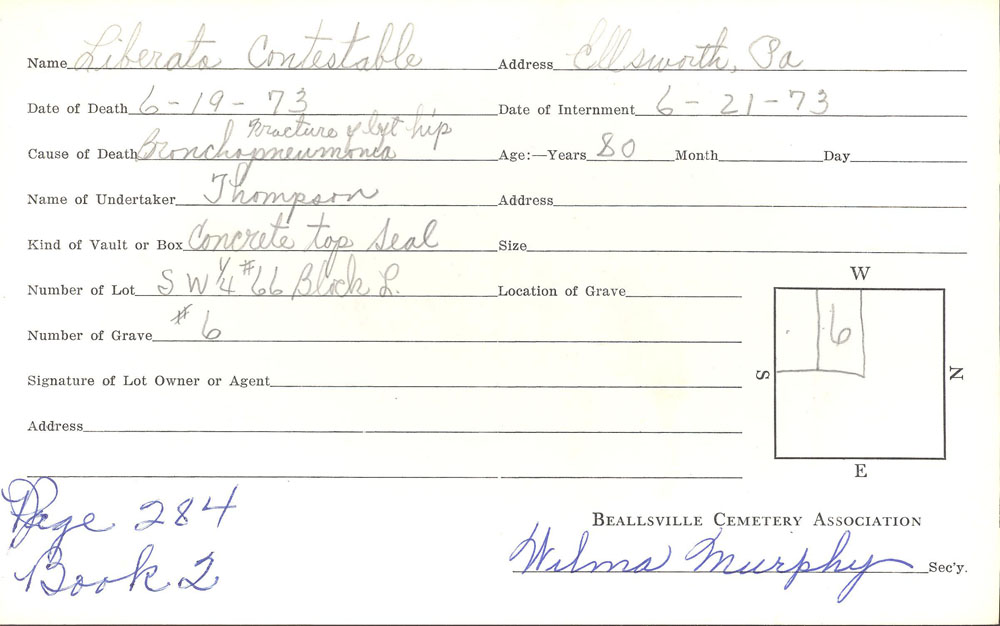 Name Liberato Contestable Address Ellsworth, Pa
Date of Death 6-19-73 Date of Internment 6-21-73
Fracture of left hip
Cause of Death Bronchopneumonia Age:—Years 80 Month Day
Name of Undertaker Thompson Address
Kind of Vault or Box Concrete top seal Size
Number of Lot S W 1/4 #66 Block L. Location of Grave
W
Number of Grave #6
6
Signature of Lot Owner or Agent
S N
Address
E
Page 284
Book 2
BEALLSVILLE CEMETERY ASSOCIATION
Wilma Murphy Sec'y.